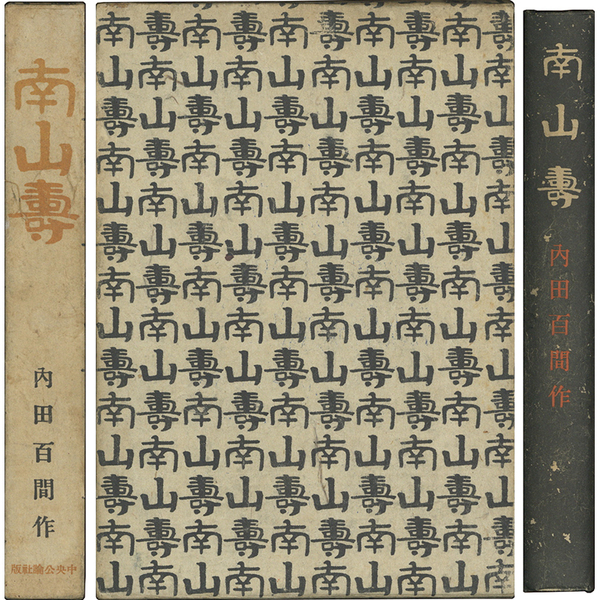 南山壽
內田百間作
中央公論社版
南壽山南壽山南壽山南
山南壽山南壽山南壽山
壽山南壽山南壽山南壽
南壽山南壽山南壽山南
山南壽山南壽山南壽山
壽山南壽山南壽山南壽
南壽山南壽山南壽山南
山南壽山南壽山南壽山
壽山南壽山南壽山南壽
南壽山南壽山南壽山南
山南壽山南壽山南壽山
壽山南壽山南壽山南壽
南壽山南壽山南壽山南
山南壽山南壽山南壽山
南山壽
內田百間作